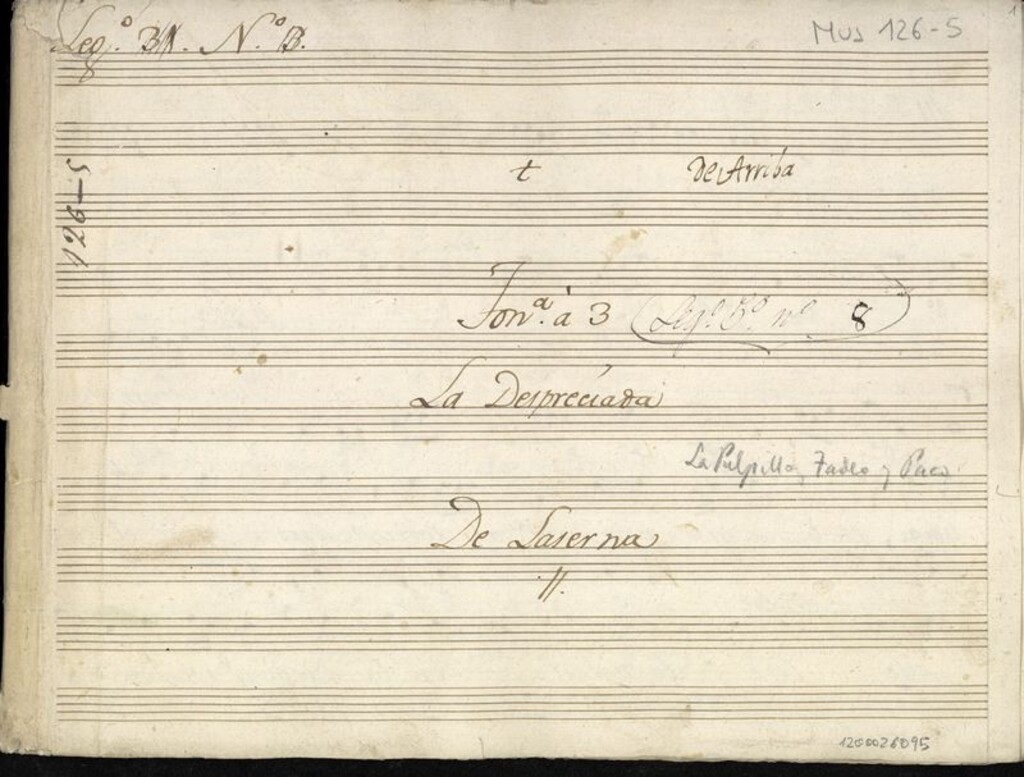 Leg.º 31. N.º 13.
Mus 126-5
126-5
t
De Arriba
Ton.ª à 3 (Leg.º 5.º nº 8)
La Despréciada
La Pulpillo, Tadeo y Paco
De Laserna
//.
1200026095